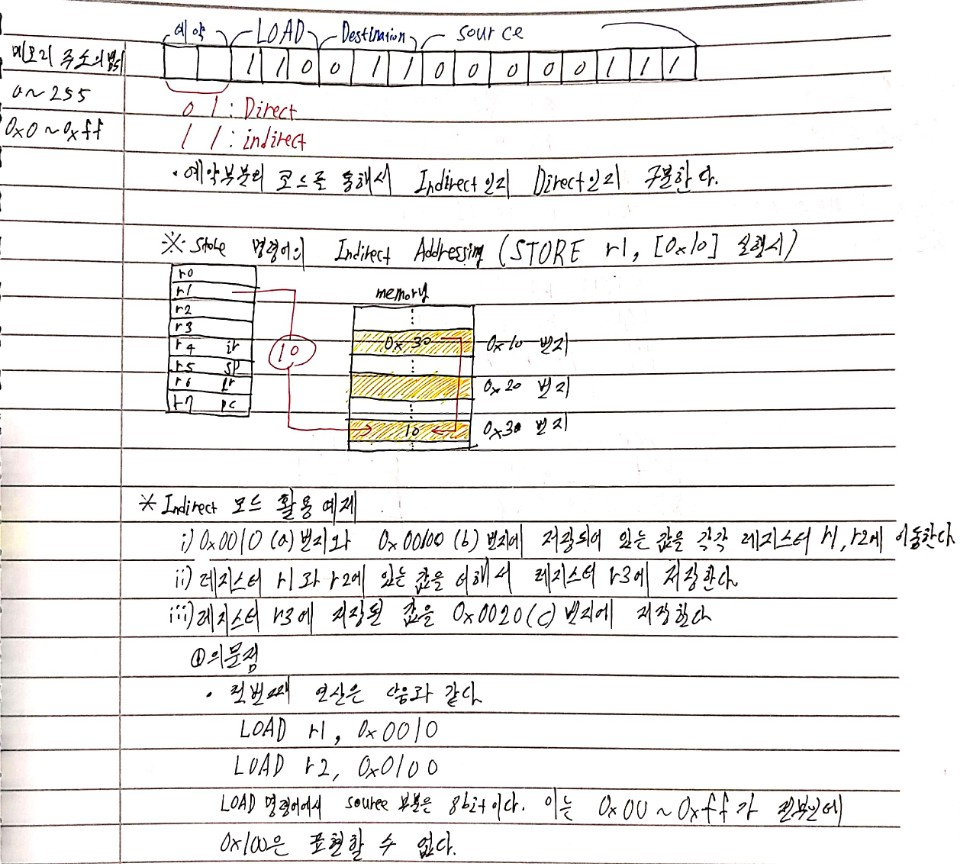 예약 LOAD Destination source
메모리 주소의 범위 1 1 0 0 1 1 0 0 0 0 0 1 1 1
0~255
0x0~0xff
0 1 : Direct
1 1 : indirect
·예약부분의 코드를 통해서 Indirect인지 Direct인지 구분한다.
※ Store 명령어의 Indirect Addressing (STORE r1, [0x10] 실행시)
r0
r1
r2
r3
r4 ir
r5 sp
r6 lr
r7 pc
10
memory
0x30 0x10 번지
0x20 번지
10 0x30 번지
※Indirect 모드 활용 예제
i) 0x0010 (a) 번지와 0x00100 (b) 번지에 저장되어 있는 값을 각각 레지스터 r1, r2에 이동한다
ii) 레지스터 r1과 r2에 있는 값을 더해서 레지스터 r3에 저장한다.
iii) 레지스터 r3에 저장된 값을 0x0020(c) 번지에 저장한다
①의문점
· 첫번째 연산은 다음과 같다.
LOAD r1, 0x0010
LOAD r2, 0x0100
LOAD 명령어에서 source 부분은 8bit이다. 이는 0x00~0xff가 전부인데
0x100은 표현할 수 없다.